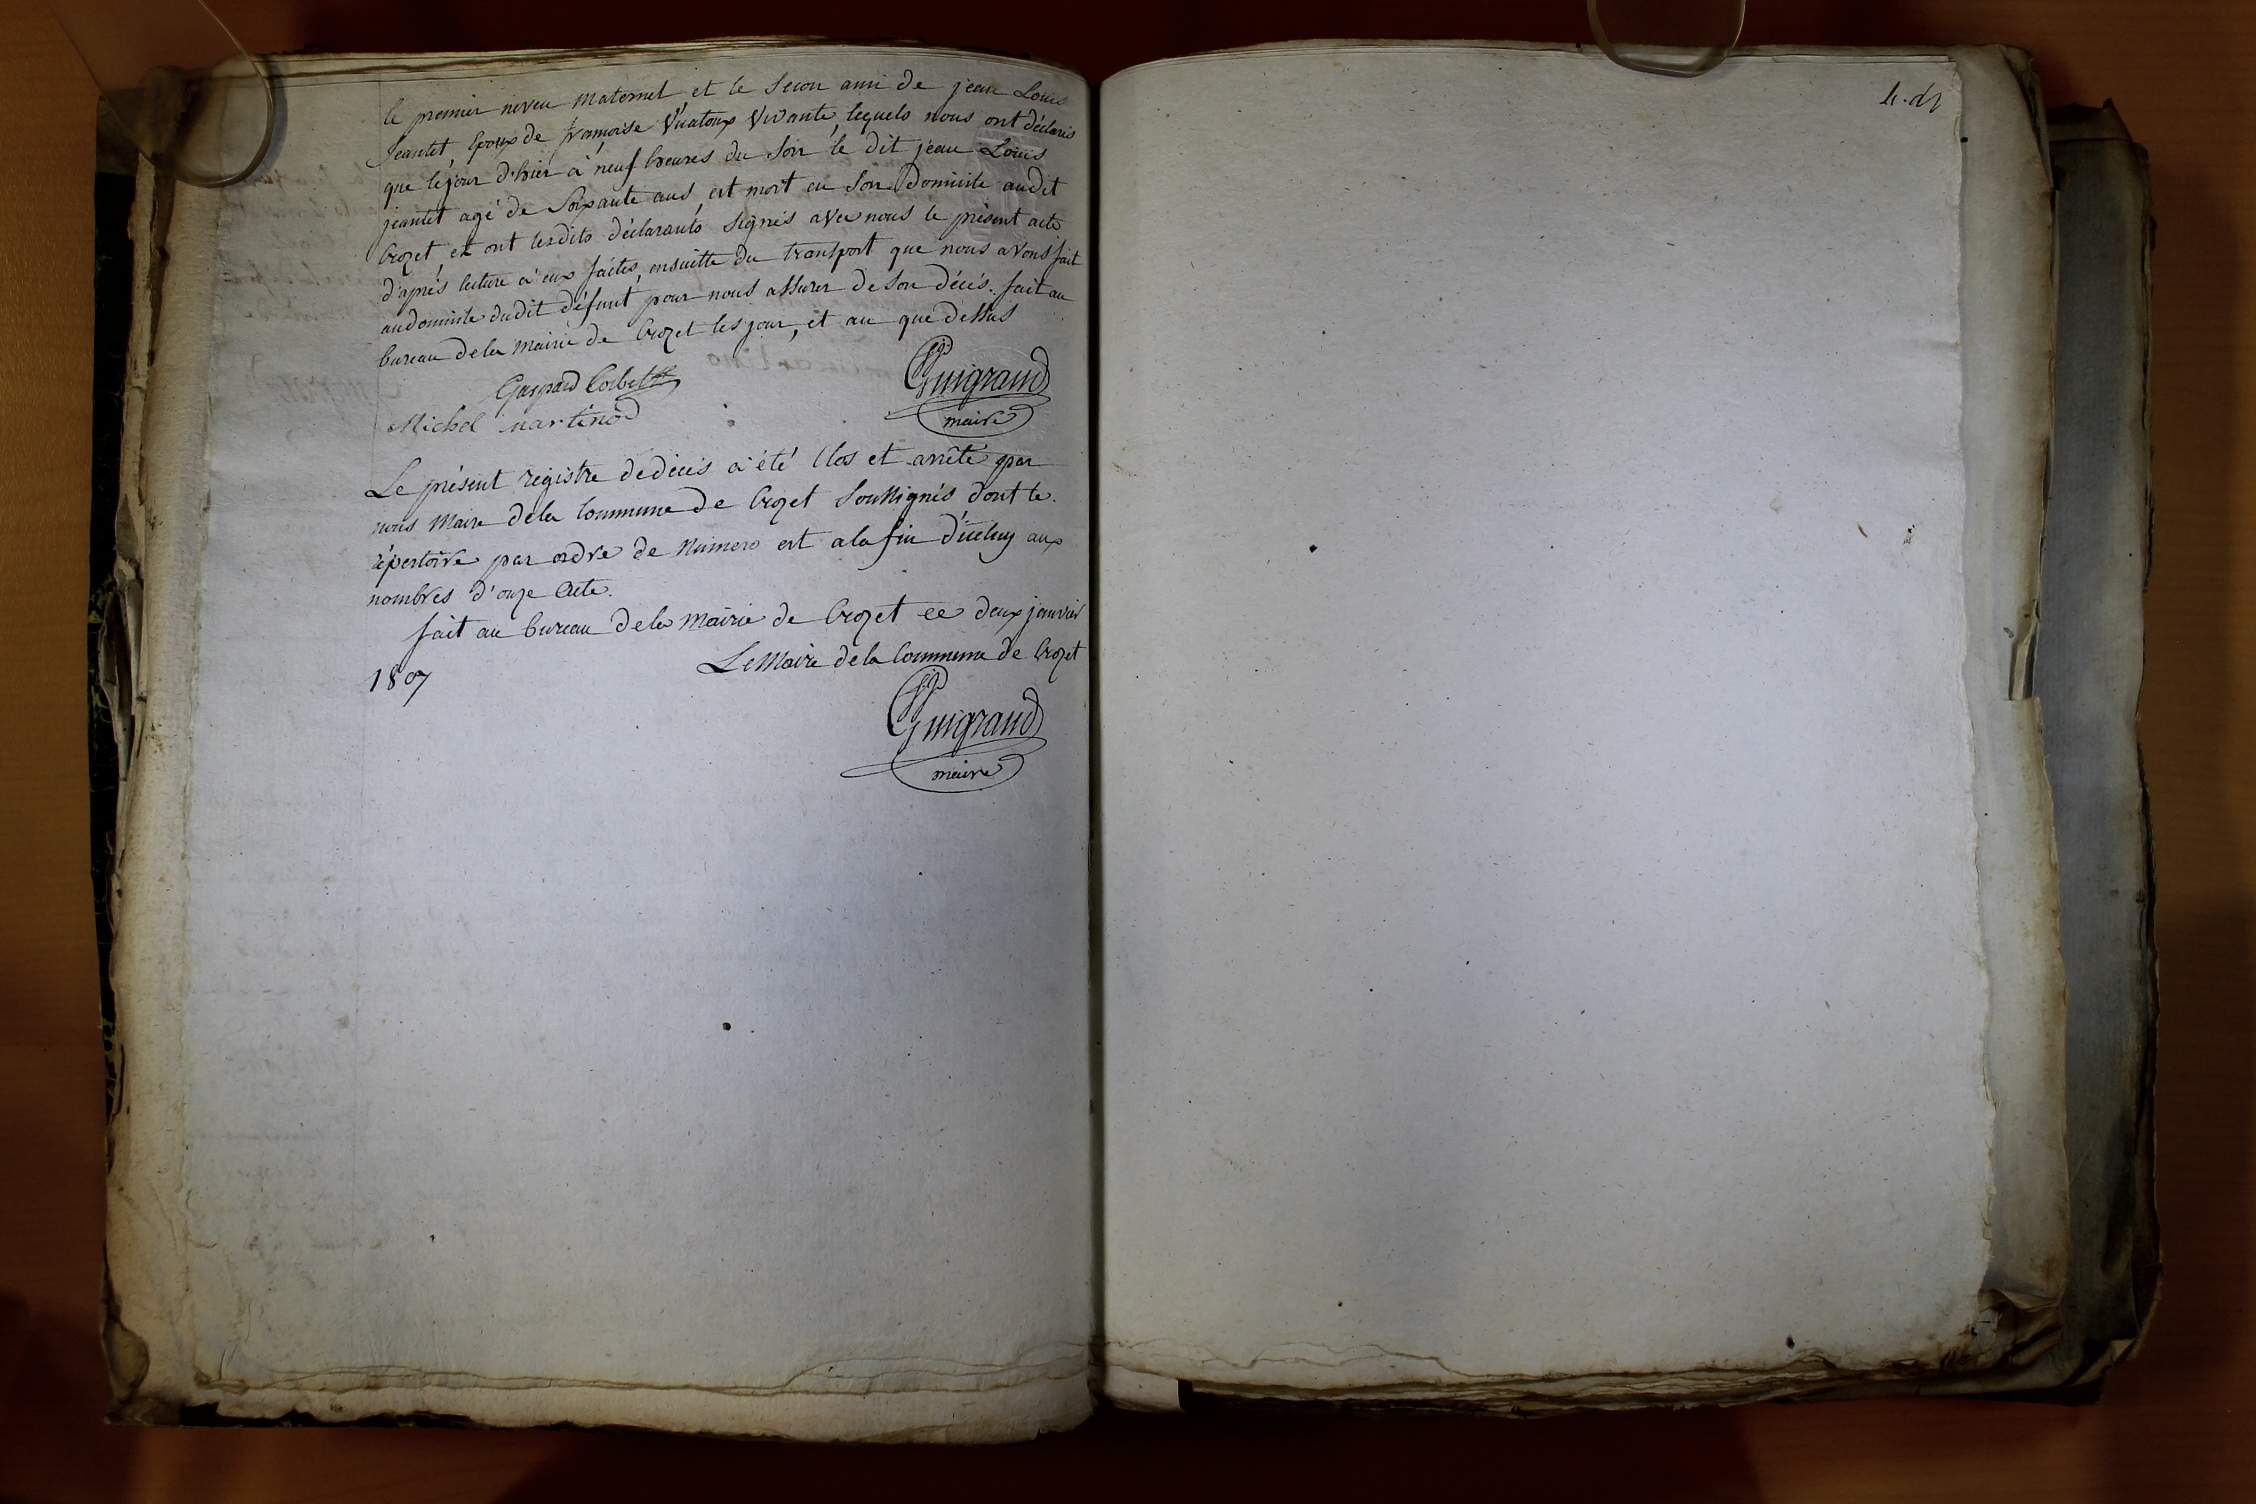 le premier neveu maternel et le secon ami de jean Louis
Jeantet, Epoux de françoise Vuatoux Vivante, lequels nous ont déclarés
que le jour d'hier à neuf heures du soir le dit jean Louis
jeantet agé de Soixante ans, est mort en son Domicile audit
Crozet, et ont lesdits déclarants signés avec nous le présent acte
d'après lecture à eux faites, ensuitte du transport que nous avons fait
au domicile dudit défunt pour nous assurer de son décés. fait au
bureau de la mairie de Crozet les jour, et an que dessus
Gaspard
Guigrand
Michel martinod
maire
Le présent registre de décés a été Clos et arrêté par
nous Maire de la Commune de Crozet Soussignés dont le
répertoire par ordre de Numero est a la fin d'iceluy aux
nombres d'onze Acte.
fait au bureau de la Mairie de Crozet ce deux janvier
1807
Le Maire de la Commune de Crozet
Guigrand
maire